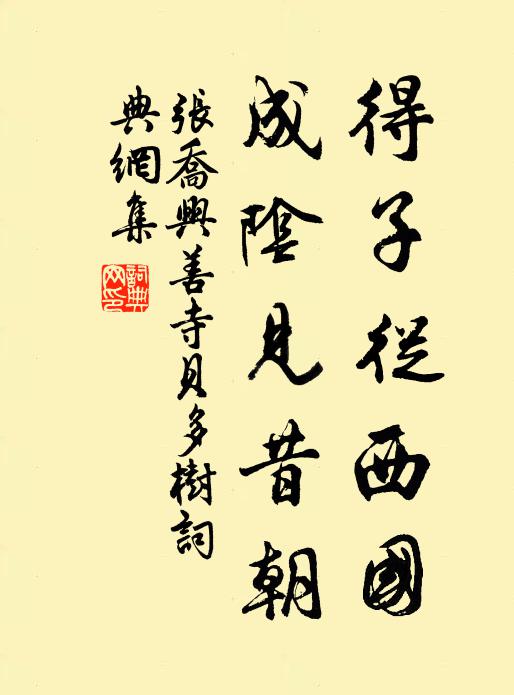 得子從西國
成陰見昔朝
張喬興善寺貝多樹詞
典網集
詞典网印